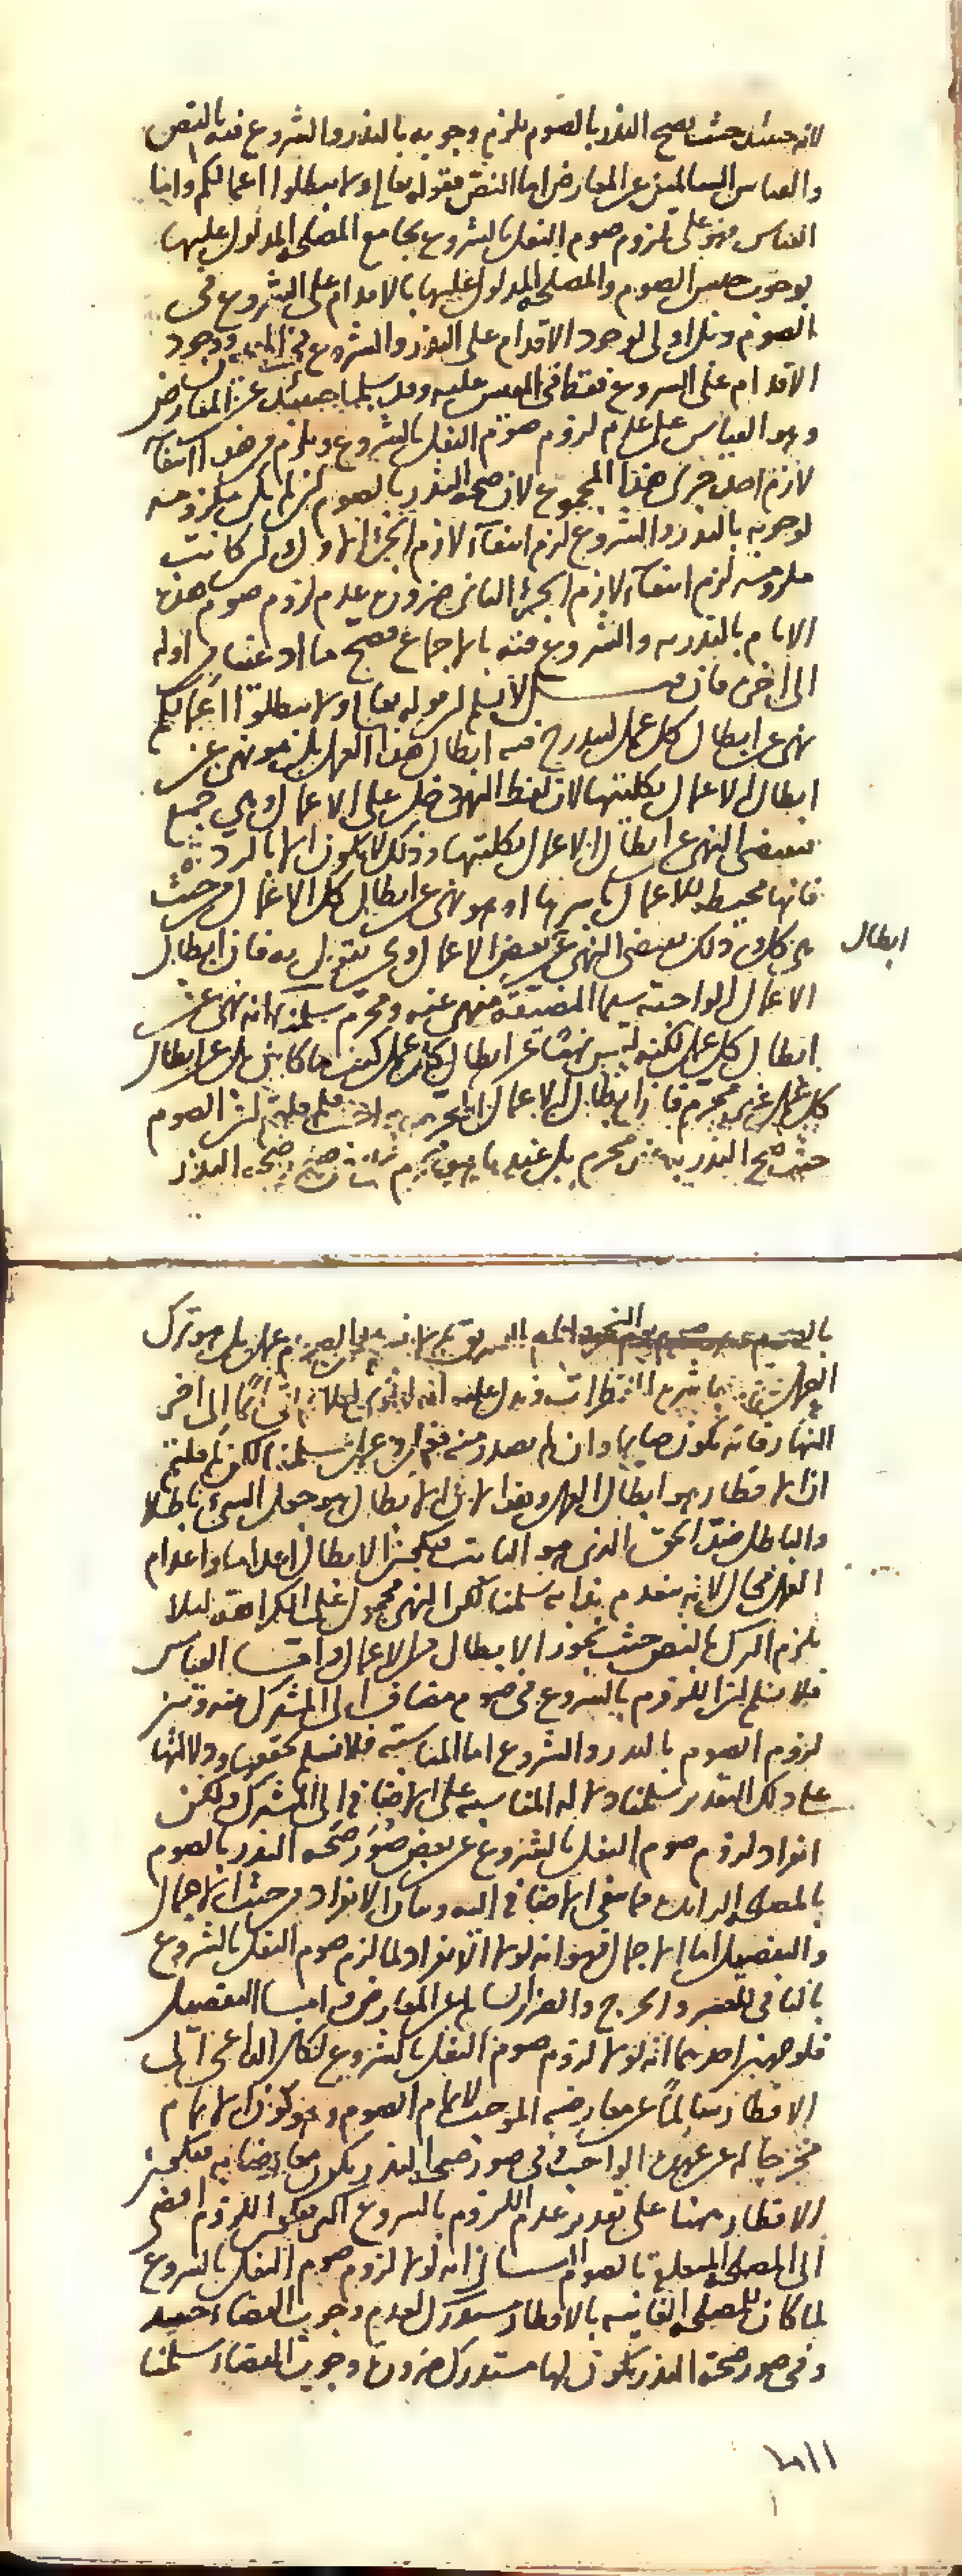 لانه حينئذ حيث يصح النذر بالصوم يلزم وجوبه بالنذر والشروع فيه بالنص
والقياس السالمين عن المعارض اما النص فقوله تعالى ولا تبطلوا اعمالكم واما
القياس فهو على لزوم صوم النفل بالشروع بجامع المصلحة المدلول عليها
بوجوب جنس الصوم والمصلحة المدلول عليها بالاقدام على الشروع في
الصوم وذلك اولى لوجود الاقدام على النذر والشروع في المقيس ووجود
الاقدام على الشروع فقط في المقيس عليه وقد سلما حينئذ عن المعارض
وهو القياس على عدم لزوم صوم النفل بالشروع ويلزم من هذا انتفاء
لازم احد جزئي هذا المجموع لان صحة النذر بالصوم ان لم يكن ملزومة
لوجوبه بالنذر والشروع لزم انتفاء لازم الجزء الاول وان كانت
ملزومة لزم انتفاء لازم الجزء الثاني ضرورة عدم لزوم صوم هذه
الايام بالنذر به والشروع فيه بالاجماع فصح ما ادعينا من اوله
الى اخره فان قيل لا نسلم ان قوله تعالى ولا تبطلوا اعمالكم
نهي عن ابطال كل عمل ليندرج فيه ابطال هذا العمل بل هو نهي عن
ابطال الاعمال بكليتها لان لفظ النهي دخل على الاعمال وهي جمع
فيقتضي النهي عن ابطال الاعمال بكليتها وذلك لا يكون الا بالردة
فانها محيطة للاعمال باسرها او هو نهي عن ابطال كل الاعمال من حيث
هي كل وذلك يقتضي النهي عن بعض الاعمال ونحن نقول به فان ابطال
ابطال
الاعمال الواجبة سيما المضيقة منهي عنه ومحرم سلمنا انه نهي عن
ابطال كل عمل لكنه ليس نهيا عن ابطال كل عمل كيف ما كان بل عن ابطال
كل عمل غير محرم فان ابطال الاعمال المحرمة واجب فلم قلتم ان الصوم
حيث صح النذر به غير محرم بل عندنا هو محرم صحة النذر
بالصوم الصوم عمل بل هو ترك
العمل الى اخر
النهار فانه يكون صايما وان لم يصدر منه فعل وعمل سلمنا لكن لم قلتم
ان الافطار هو ابطال العمل وهذا لان الابطال هو جعل الشيء باطلا
والباطل ضد الحق الذي هو الثابت فيكون الابطال اعداما واعدام
العمل محال لانه ينعدم بذاته سلمنا لكن النهي محمول على الكراهة ليلا
يلزم الترك بالنص حيث يجوز الابطال من الاعمال واما القياس
فلا نسلم ان اللزوم بالشروع في صوم مضاف الى المشترك بينه وبين
لزوم الصوم بالنذر والشروع اما المناسبة فلا نسلم تحققها ودلالتها
على ذلك التقدير سلمنا دلالة المناسبة على الاضافة الى المشترك ولكن
انفراد لزوم صوم النفل بالشروع عن بعض صور صحة النذر بالصوم
بالمصلحة الزايدة مما ينفي الاضافة اليه وبيان الانفراد من حيث الاجمال
والتفصيل اما الاجمال فهو انه لولا الانفراد لما لزم صوم النفل بالشروع
بالنافي للعسر والحرج والضرر السالم عن المعارض واما التفصيل
فلوجهين احدهما انه لولا لزوم صوم النفل بالشروع لكان الداعي الى
الافطار سالما عن معارضة الموجب لاتمام الصوم وهو كون الاتمام
مخرجا له عن عهدة الواجب وفي صور صحة النذر يكون معارضا به فيكون
الافطار ههنا على تقدير عدم اللزوم بالشروع اكثر فيكون اللزوم افضى
الى المصلحة المتعلقة بالصوم الثاني انه لولا لزوم صوم النفل بالشروع
لما كان للمصلحة الفائتة بالافطار مستدرك لعدم وجوب القضاء حينئذ
وفي صور صحة النذر يكون لها مستدرك ضرورة وجوب القضاء سلمنا